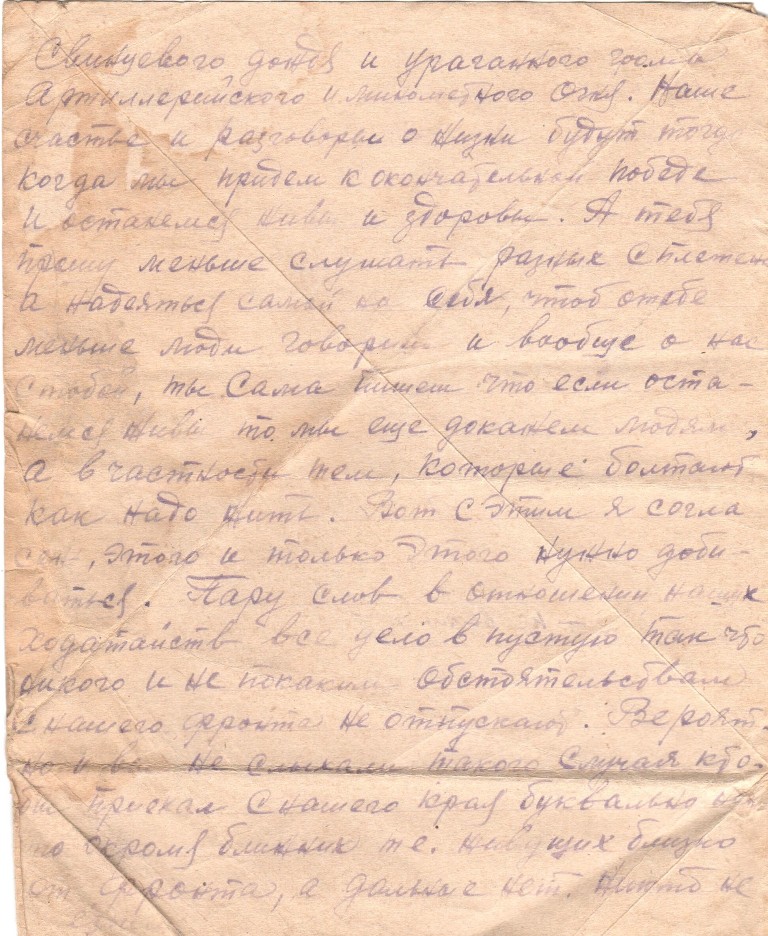 Свинцевого дождя и ураганного грома
Артиллерийского и минометного Огня. Наше
счастье и разговоры о жизни будут тогда
когда мы придем к окончательной победе
и останемся живы и здоровы. А тебя
прошу меньше слушать разных сплетень
а надеяться самой на себя, чтоб о тебе
меньше люди говорили и вообще о нас
стобой, ты Сама пишеш что если оста-
немся живы то мы еще докажем людям,
а в частности тем, которые болтают
как надо жить. Вот с этим я согла
сен, этого и только этого нужно доби-
ваться. Пару слов в отношении наших
Ходатайств все уело в пустую так что
никого и не покаким обстоятельствам
с нашего фронта не отпускают. Вероят-
но и вы не слыхали такого случая кто-
приехал с нашего края буквально
окромя ближних те. живущих близко
от фронта, а дальше нет. никто не